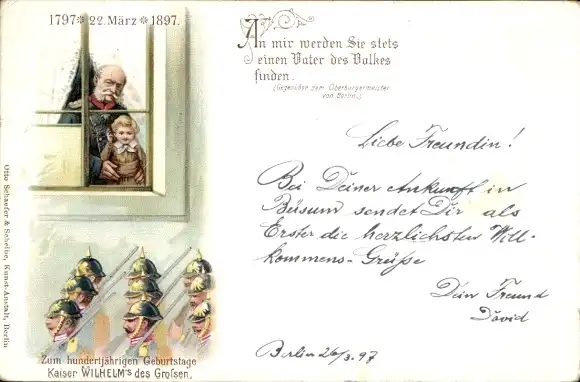 1797 * 22. März * 1897.
An mir werden Sie stets
einen Vater des Volkes
finden.
(Gegenüber dem Oberbürgermeister
von Berlin.)
Liebe Freundin!
Bei Deiner Ankunft in
Büsum sendet Dir als
Erster die herzlichsten Will-
kommens-Grüße
Dein Freund
David
Berlin 26/3.97
Zum hundertjährigen Geburtstage
Kaiser WILHELM's des Großen.
Otto Schaefer & Scheibe, Kunst-Anstalt, Berlin